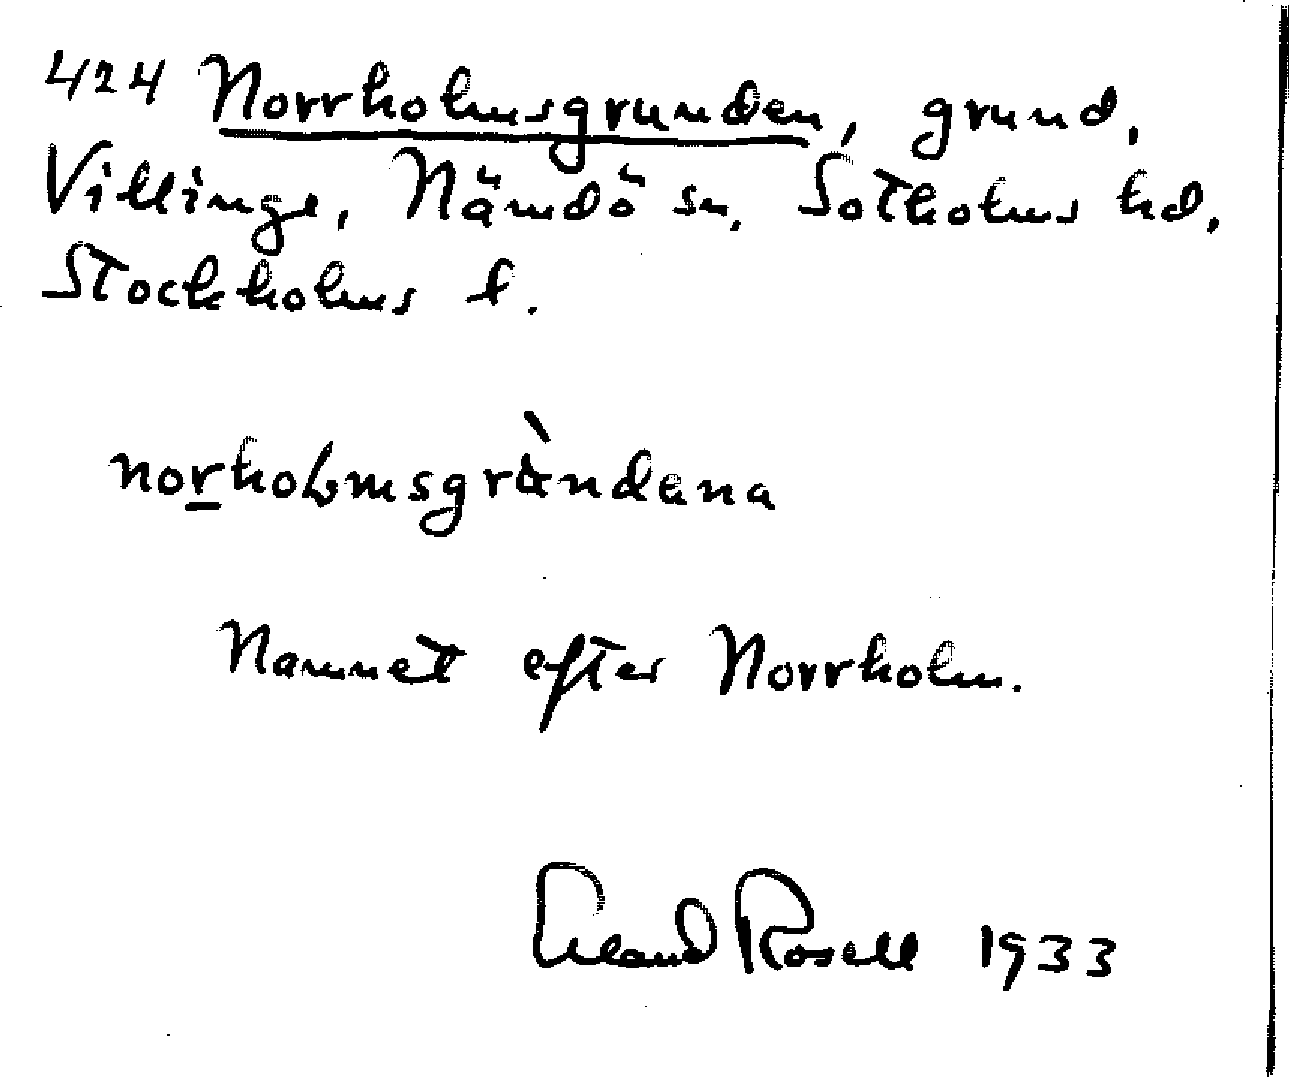 424 Norrholmsgrunden, grund,
Villinge, Nämdö sn, Sotholms hd,
Stockholms l.
norholmsgrùndana
Namnet efter Norrholm.
Erland Rosell 1933